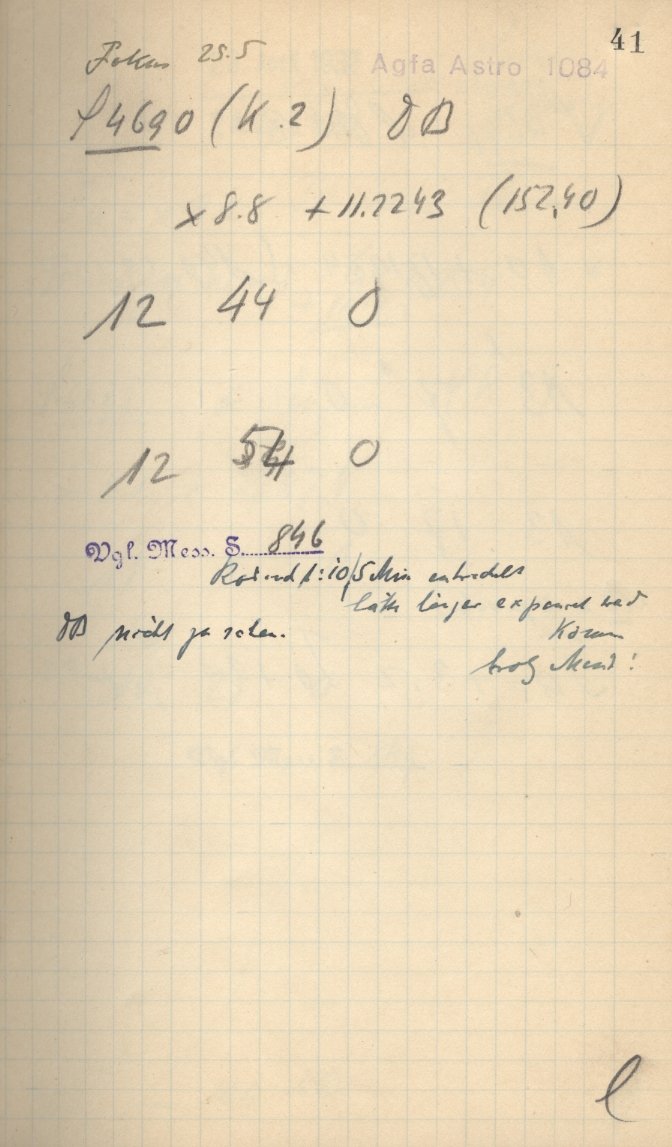 41
Fokus 25.5
Agfa Astro 1084
4690 (K.2) DB
x 8.8 + 11.2243 (152,40)
12 44 0
12 54 0
Vgl. Mess. S. 846
1:10, 5 Min
länger
DB nicht zu sehen.
trotz Mond!